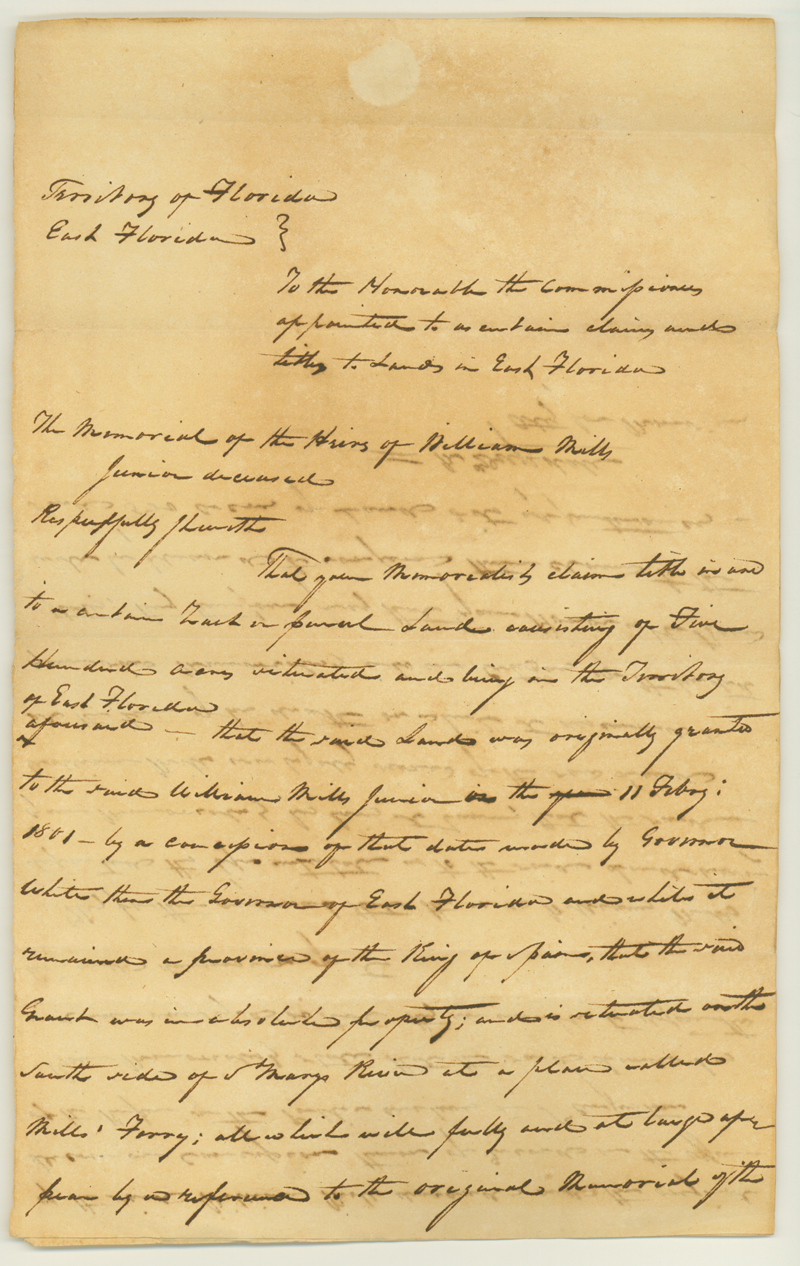 Territory of Florida
East Florida }
To the Honorable the Commissioners
appointed to ascertain claims and
titles to Lands in East Florida
The Memorial of the Heirs of William Mills
Junior deceased
Respectfully Sheweth
That your Memorialists claim title in and
to a certain tract or parcel Land consisting of Five
Hundred acres situated and being in the Territory
of East Florida
aforesaid — that the said Land was originally granted
to the said William Mills Junior in the year 11 Febry:
1801 — by a concession of that date made by Governor
White then the Governor of East Florida and whilst it
remained a province of the King of Spain, that the said
Grant was in absolute property; and is situated on the
South side of St Marys River at a place called
Mills' Ferry; all which will fully and at large ap=
pear by a reference to the original Memorial of the